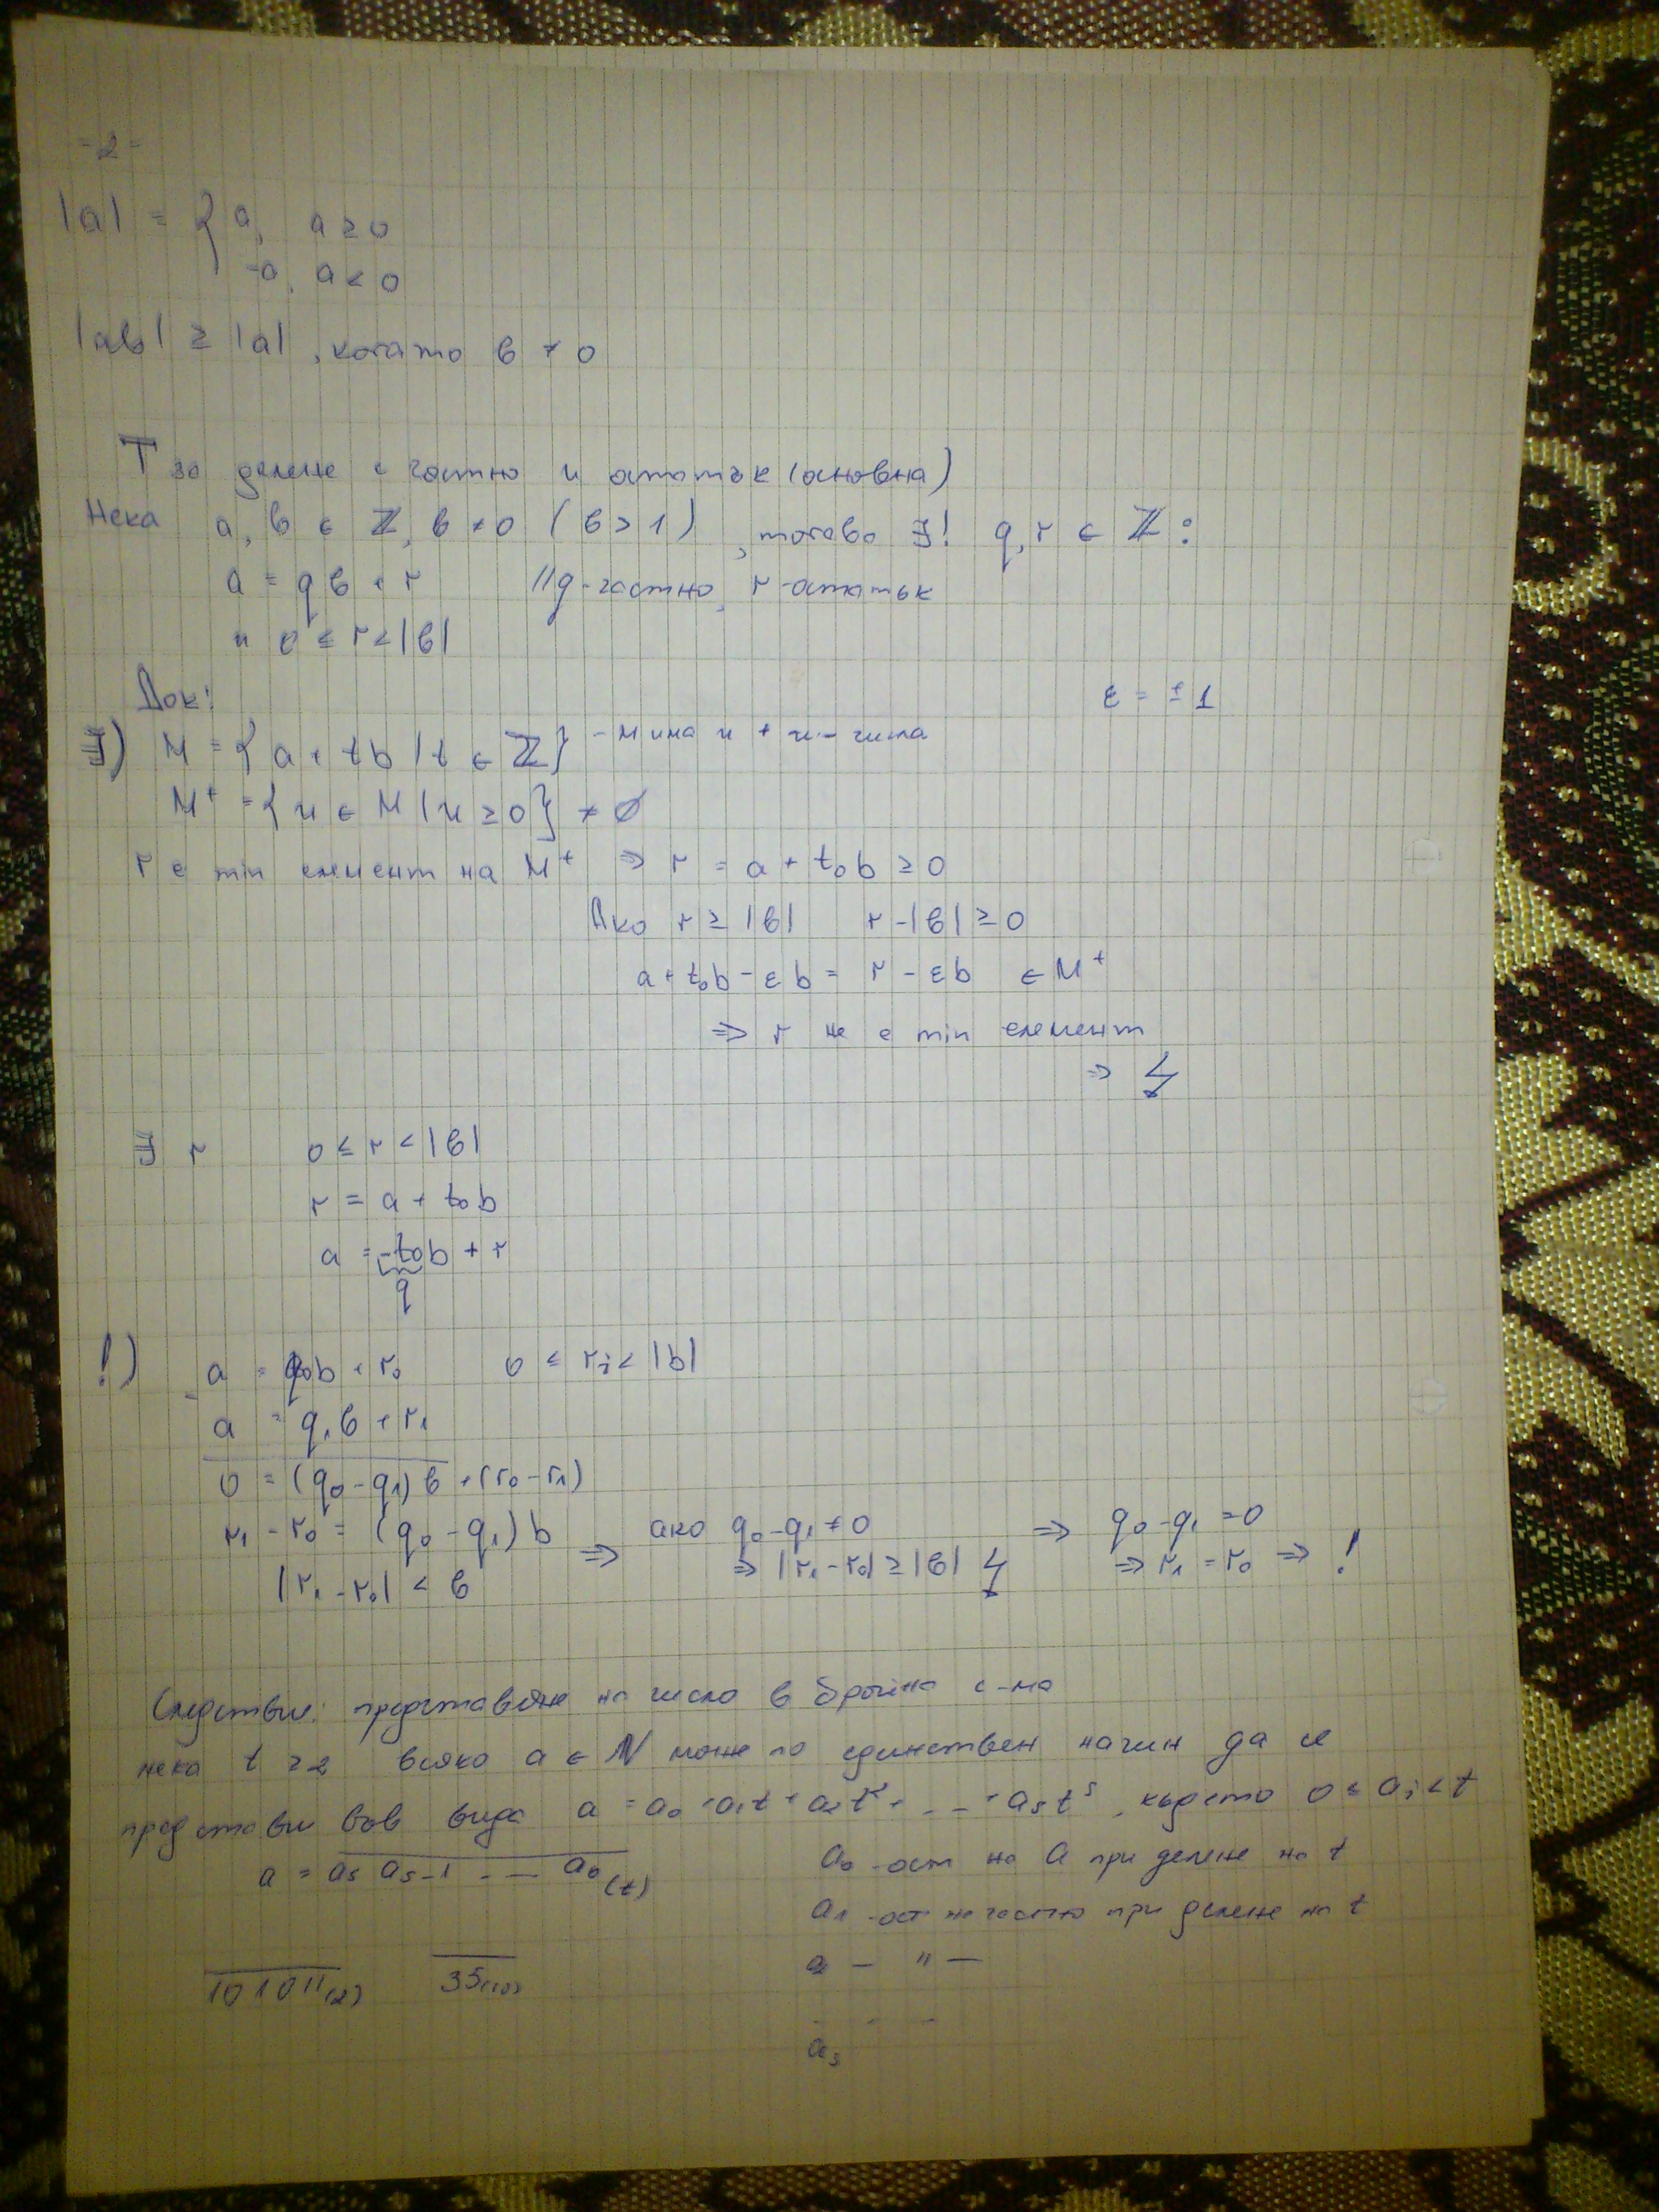 -2-
|a| = { a, a ≥ 0
-a, a < 0
|ab| ≥ |a|, когато b ≠ 0
Т за делене с частно и остатък (основна)
Нека a, b ∈ ℤ, b ≠ 0 (b > 1), тогава ∃! q, r ∈ ℤ:
a = qb + r // q-частно, r-остатък
и 0 ≤ r < |b|
Док: ε = ±1
∃) M = { a + tb | t ∈ ℤ } - M има и + и - числа
M⁺ = { u ∈ M | u ≥ 0 } ≠ ∅
r е min елемент на M⁺ ⇒ r = a + t₀b ≥ 0
Ако r ≥ |b| r - |b| ≥ 0
a + t₀b - εb = r - εb ∈ M⁺
⇒ r не е min елемент
⇒ ↯
∃ r 0 ≤ r < |b|
r = a + t₀b
a = -t₀b + r
q
!) a = q₀b + r₀ 0 ≤ rᵢ < |b|
- a = q₁b + r₁
0 = (q₀ - q₁)b + (r₀ - r₁)
r₁ - r₀ = (q₀ - q₁)b ⇒ ако q₀ - q₁ ≠ 0 ⇒ q₀ - q₁ = 0
|r₁ - r₀| < b ⇒ |r₁ - r₀| ≥ |b| ↯ ⇒ r₁ = r₀ ⇒ !
Следствие: представяне на число в бройна с-ма
нека t ≥ 2 всяко a ∈ ℕ може по единствен начин да се
представи във вида a = a₀ + a₁t + a₂t² + ... + aₛtˢ, където 0 ≤ aᵢ < t
a = aₛ aₛ₋₁ ... a₀ (t) a₀ - ост на a при делене на t
a₁ - ост на частно при делене на t
101011(2) 35(10) a₂ — " —
. . .
aₛ